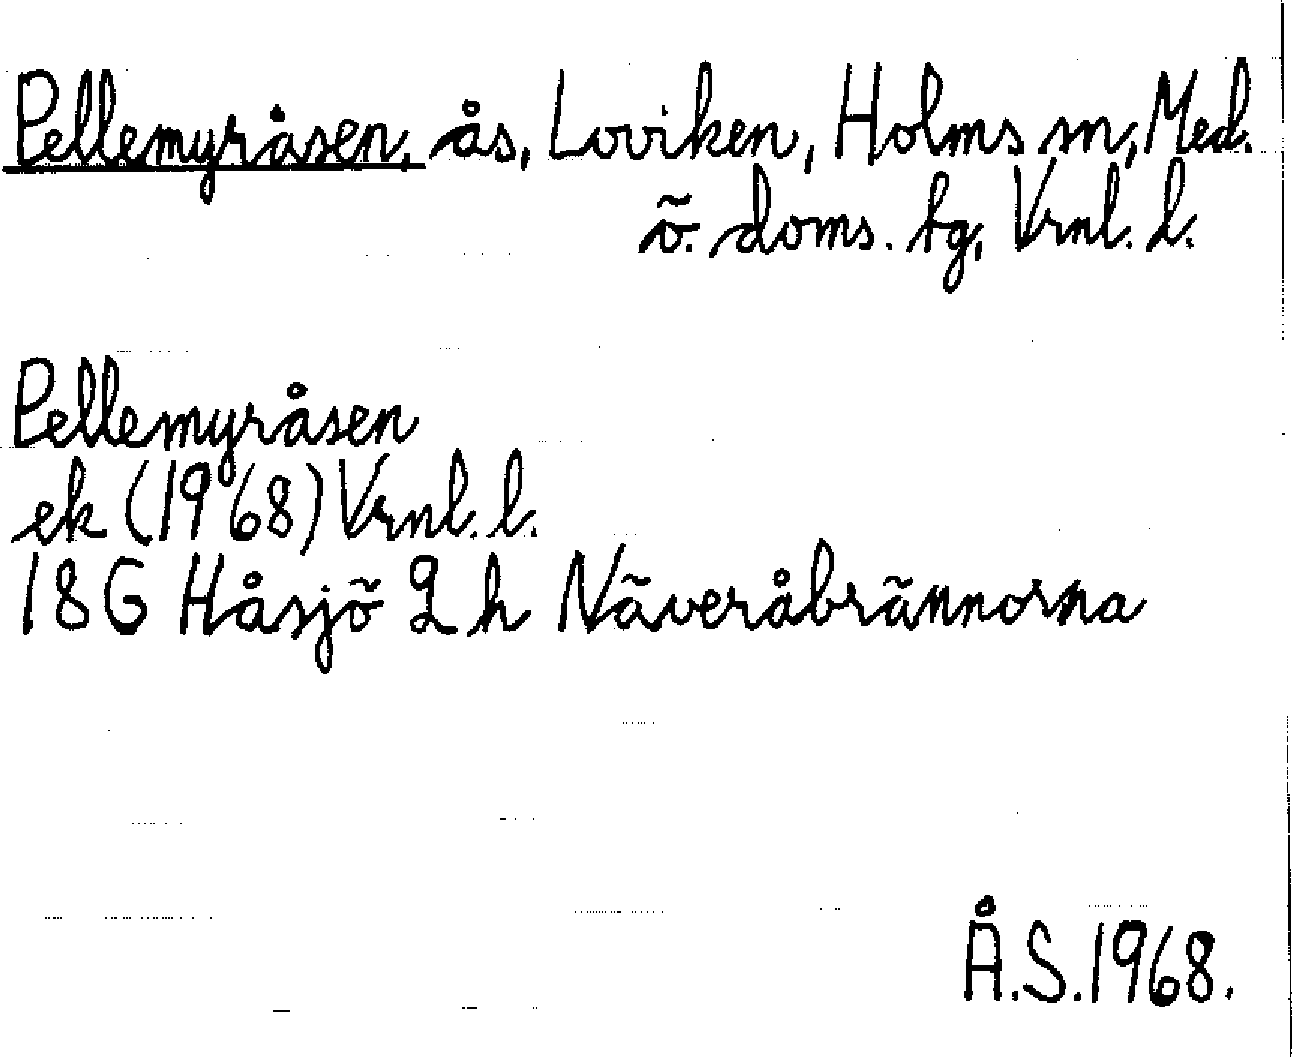 Pellemyråsen, ås, Loviken, Holms sn, Med.
ö. doms. tg, Vrnl. l.
Pellemyråsen
ek (1968) Vrnl. l.
18G Håsjö 2 h Näveråbrännorna
Å.S.1968.